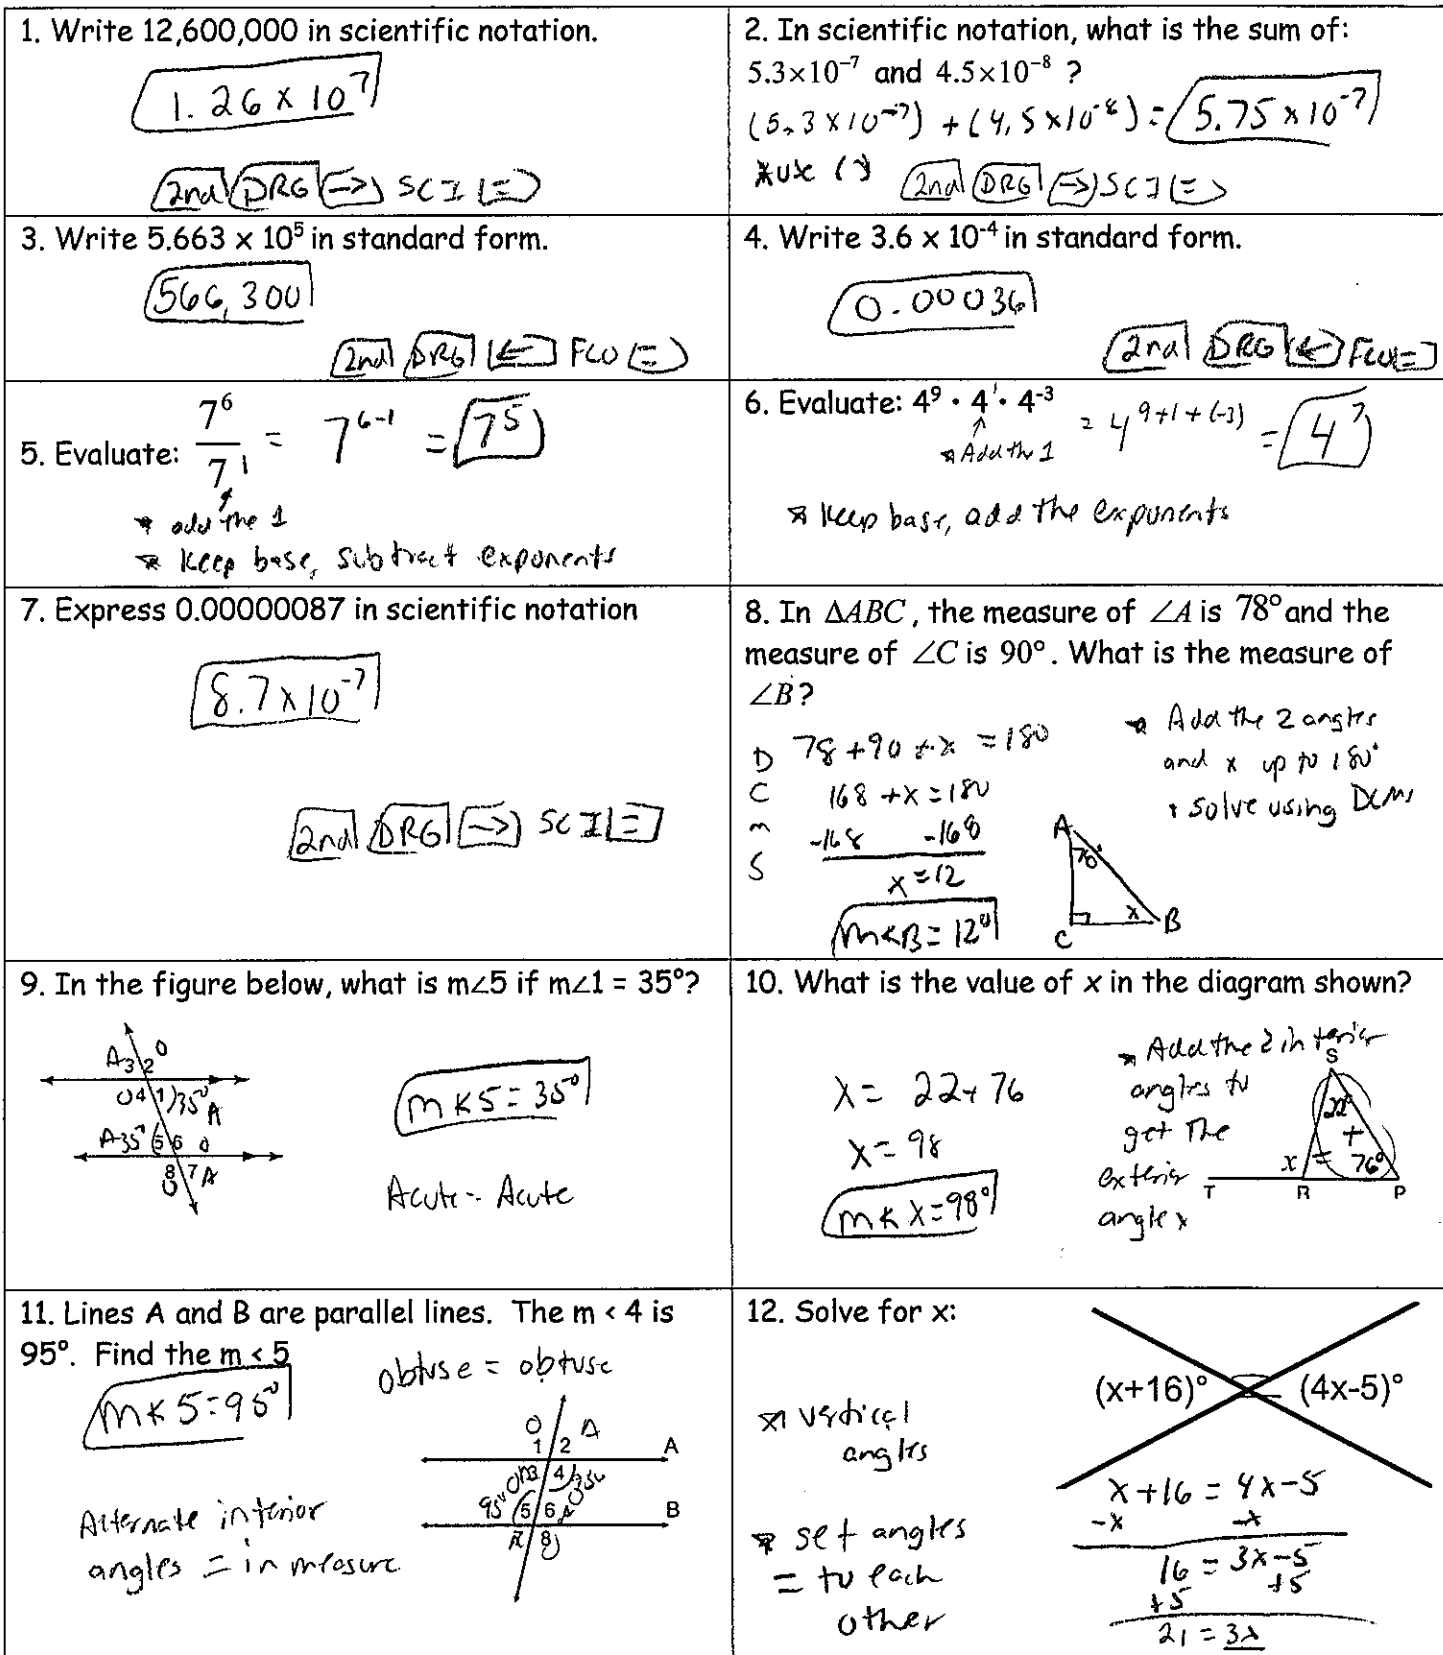 1. Write 12,600,000 in scientific notation.
1.26 x 10^7
2nd DRG -> SCI =
2. In scientific notation, what is the sum of:
5.3×10^-7 and 4.5×10^-8 ?
(5.3 x 10^-7) + (4.5 x 10^-8) = 5.75 x 10^-7
*use ( ) 2nd DRG -> SCI =
3. Write 5.663 x 10^5 in standard form.
566,300
2nd DRG <- FLO =
4. Write 3.6 x 10^-4 in standard form.
0.00036
2nd DRG <- FLO =
5. Evaluate: 7^6 / 7^1 = 7^6-1 = 7^5
* add the 1
* Keep base, subtract exponents
6. Evaluate: 4^9 • 4^1 • 4^-3 = 4^9+1+(-3) = 4^7
* Add the 1
* Keep base, add the exponents
7. Express 0.00000087 in scientific notation
8.7 x 10^-7
2nd DRG -> SCI =
8. In ΔABC, the measure of ∠A is 78° and the
measure of ∠C is 90°. What is the measure of
∠B?
D 78 + 90 + x = 180
C 168 + x = 180
m -168 -168
S x = 12
m∢B = 12°
* Add the 2 angles
and x up to 180°
* solve using DCMS
A
78°
x B
C
9. In the figure below, what is m∠5 if m∠1 = 35°?
A 3 2 O
O 4 1 35° A
A 35° 5 6 O
8 7 A
O
m∢5 = 35°
Acute = Acute
10. What is the value of x in the diagram shown?
x = 22 + 76
x = 98
m∢x = 98°
* Add the 2 interior
angles to
get the
exterior
angle x
S
22°
+
x = 76°
T R P
11. Lines A and B are parallel lines. The m < 4 is
95°. Find the m < 5
m∢5 = 95°
obtuse = obtuse
Alternate interior
angles = in measure
O 1 2 A A
3 4
95° 5 6 A B
8
12. Solve for x:
(x+16)° = (4x-5)°
* vertical
angles
* set angles
= to each
other
x + 16 = 4x - 5
-x -x
16 = 3x - 5
+5 +5
21 = 3x